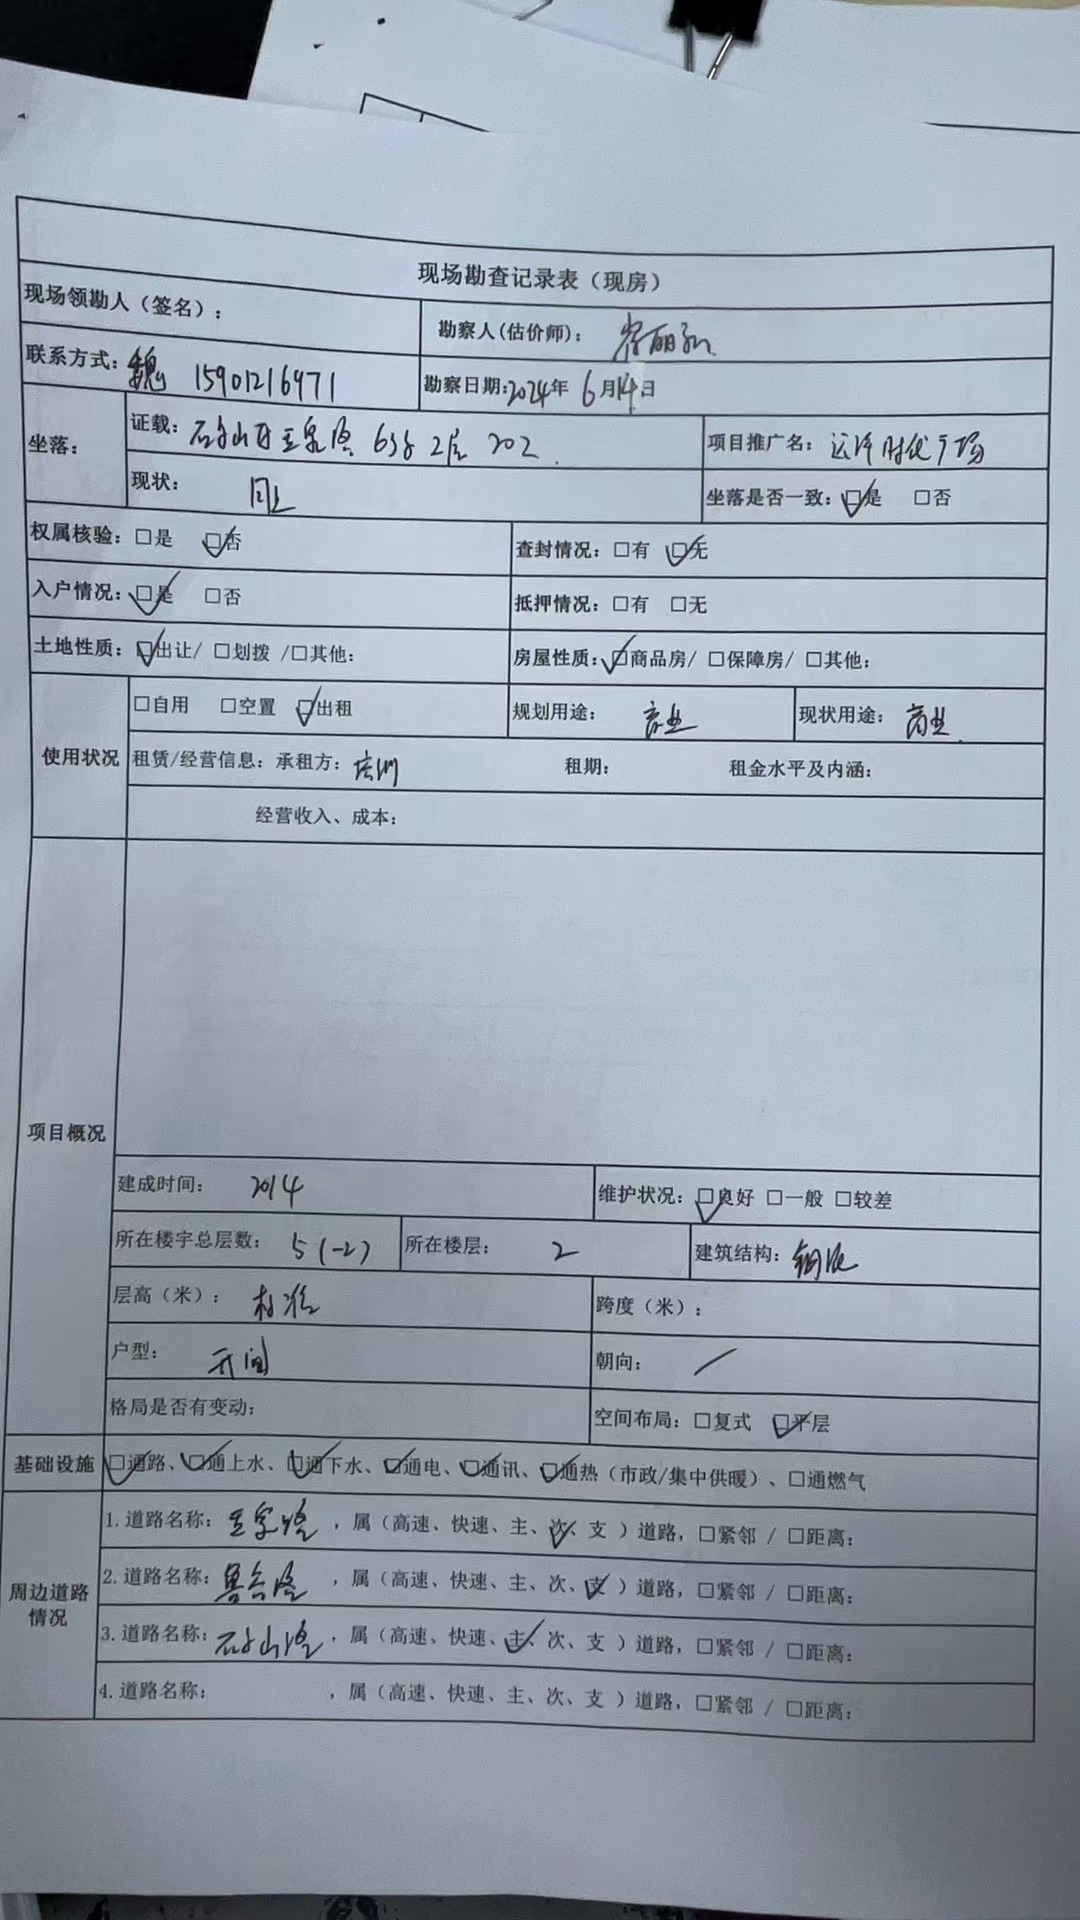 现场勘查记录表（现房）
现场领勘人（签名）：
勘察人(估价师)：
联系方式：魏 15901216971
勘察日期:2024年 6月14日
坐落：
证载：石景山区玉泉路 63号 2层 202
项目推广名：远洋时代广场
现状： 同上
坐落是否一致：☑是 □否
权属核验：□是 ☑否
查封情况：□有 ☑无
入户情况：☑是 □否
抵押情况：□有 □无
土地性质：☑出让/ □划拨 /□其他:
房屋性质：☑商品房/ □保障房/ □其他:
使用状况
□自用 □空置 ☑出租
规划用途： 商业
现状用途： 商业
租赁/经营信息：承租方：培训 租期： 租金水平及内涵：
经营收入、成本：
项目概况
建成时间： 2014
维护状况：☑良好 □一般 □较差
所在楼宇总层数： 5(-2)
所在楼层： 2
建筑结构：钢混
层高（米）： 标准
跨度（米）：
户型： 开间
朝向： /
格局是否有变动：
空间布局：□复式 ☑平层
基础设施
☑通路、☑通上水、☑通下水、☑通电、☑通讯、☑通热（市政/集中供暖）、□通燃气
周边道路情况
1.道路名称：玉泉路 ，属（高速、快速、主、次✓、支 ）道路，□紧邻 / □距离：
2.道路名称：鲁谷路 ，属（高速、快速、主、次、支✓ ）道路，□紧邻 / □距离：
3.道路名称：石景山路 ，属（高速、快速、主✓、次、支 ）道路，□紧邻 / □距离：
4.道路名称： ，属（高速、快速、主、次、支 ）道路，□紧邻 / □距离：